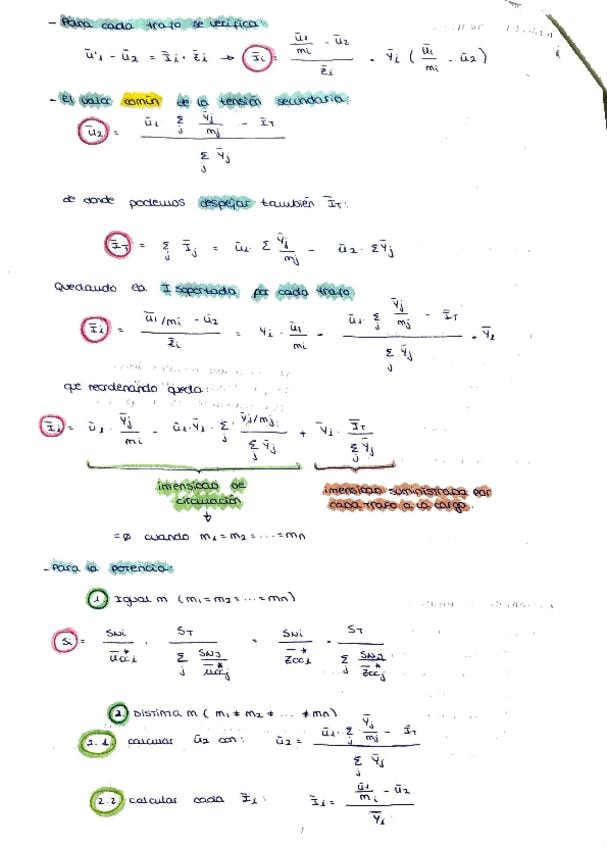 - Para cada trafo se verifica:
ū'₁ - ū₂ = Īᵢ · z̄ᵢ → Īᵢ = (ū₁/mᵢ - ū₂) / z̄ᵢ = Ȳᵢ (ū₁/mᵢ - ū₂)
- El valor común de la tensión secundaria:
ū₂ = (ū₁ Σⱼ Ȳⱼ/mⱼ - Ī_T) / (Σⱼ Ȳⱼ)
de donde podemos despejar también Ī_T:
Ī_T = Σⱼ Īⱼ = ū₁ · Σ Ȳⱼ/mⱼ - ū₂ · ΣȲⱼ
Quedando la I soportada por cada trafo
Īᵢ = (ū₁/mᵢ - ū₂) / z̄ᵢ = Yᵢ · ū₁/mᵢ - (ū₁ Σⱼ Ȳⱼ/mⱼ - Ī_T) / (Σⱼ Ȳⱼ) · Ȳᵢ
que reordenando queda:
Īᵢ = ū₁ · Ȳⱼ/mᵢ - ū₁·Ȳᵢ · Σⱼ (Ȳⱼ/mⱼ) / (Σⱼ Ȳⱼ) + Ȳᵢ · Ī_T / (Σⱼ Ȳⱼ)
intensidad de circulación
intensidad suministrada por cada trafo a la carga.
↓
=∅ cuando m₁=m₂=...=mn
- Para la potencia:
1. Igual m (m₁=m₂=...=mn)
Sᵢ = SNi / ūcc*ᵢ · S_T / (Σⱼ SNJ / ūcc*ⱼ) = SNi / z̄cc*ᵢ · S_T / (Σⱼ SNJ / z̄cc*ⱼ)
2. Distinta m (m₁ ≠ m₂ ≠ ... ≠ mn)
2.1. calcular ū₂ con: ū₂ = (ū₁· Σⱼ Ȳⱼ/mⱼ - Ī_T) / (Σⱼ Ȳⱼ)
2.2 calcular cada Īᵢ: Īᵢ = (ū₁/mᵢ - ū₂) / Ȳᵢ